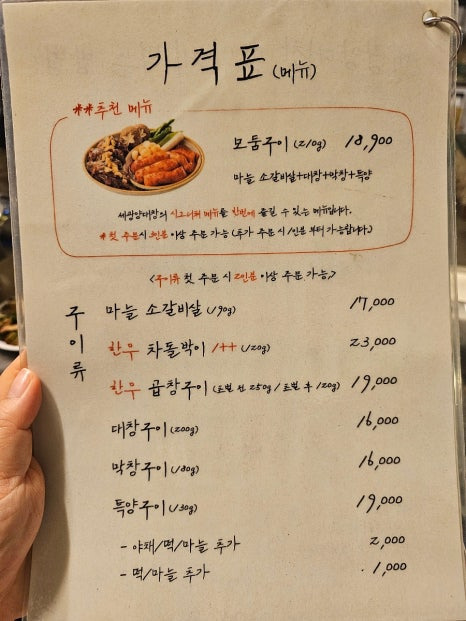 가격표 (메뉴)
**추천 메뉴
모둠구이 (210g) 18,900
마늘 소갈비살+대창+막창+특양
세광양대창의 시그니처 메뉴를 한번에 즐길 수 있는 메뉴입니다.
*첫 주문시 3인분 이상 주문 가능 (추가 주문 시 1인분 부터 가능합니다.)
<구이류 첫 주문 시 2인분 이상 주문 가능>
구이류
마늘 소갈비살 (190g) 17,000
한우 차돌박이 1++ (120g) 23,000
한우 곱창구이 (초벌 전 250g / 초벌 후 120g) 19,000
대창구이 (200g) 16,000
막창구이 (180g) 16,000
특양구이 (130g) 19,000
- 야채/떡/마늘 추가 2,000
- 떡/마늘 추가 1,000